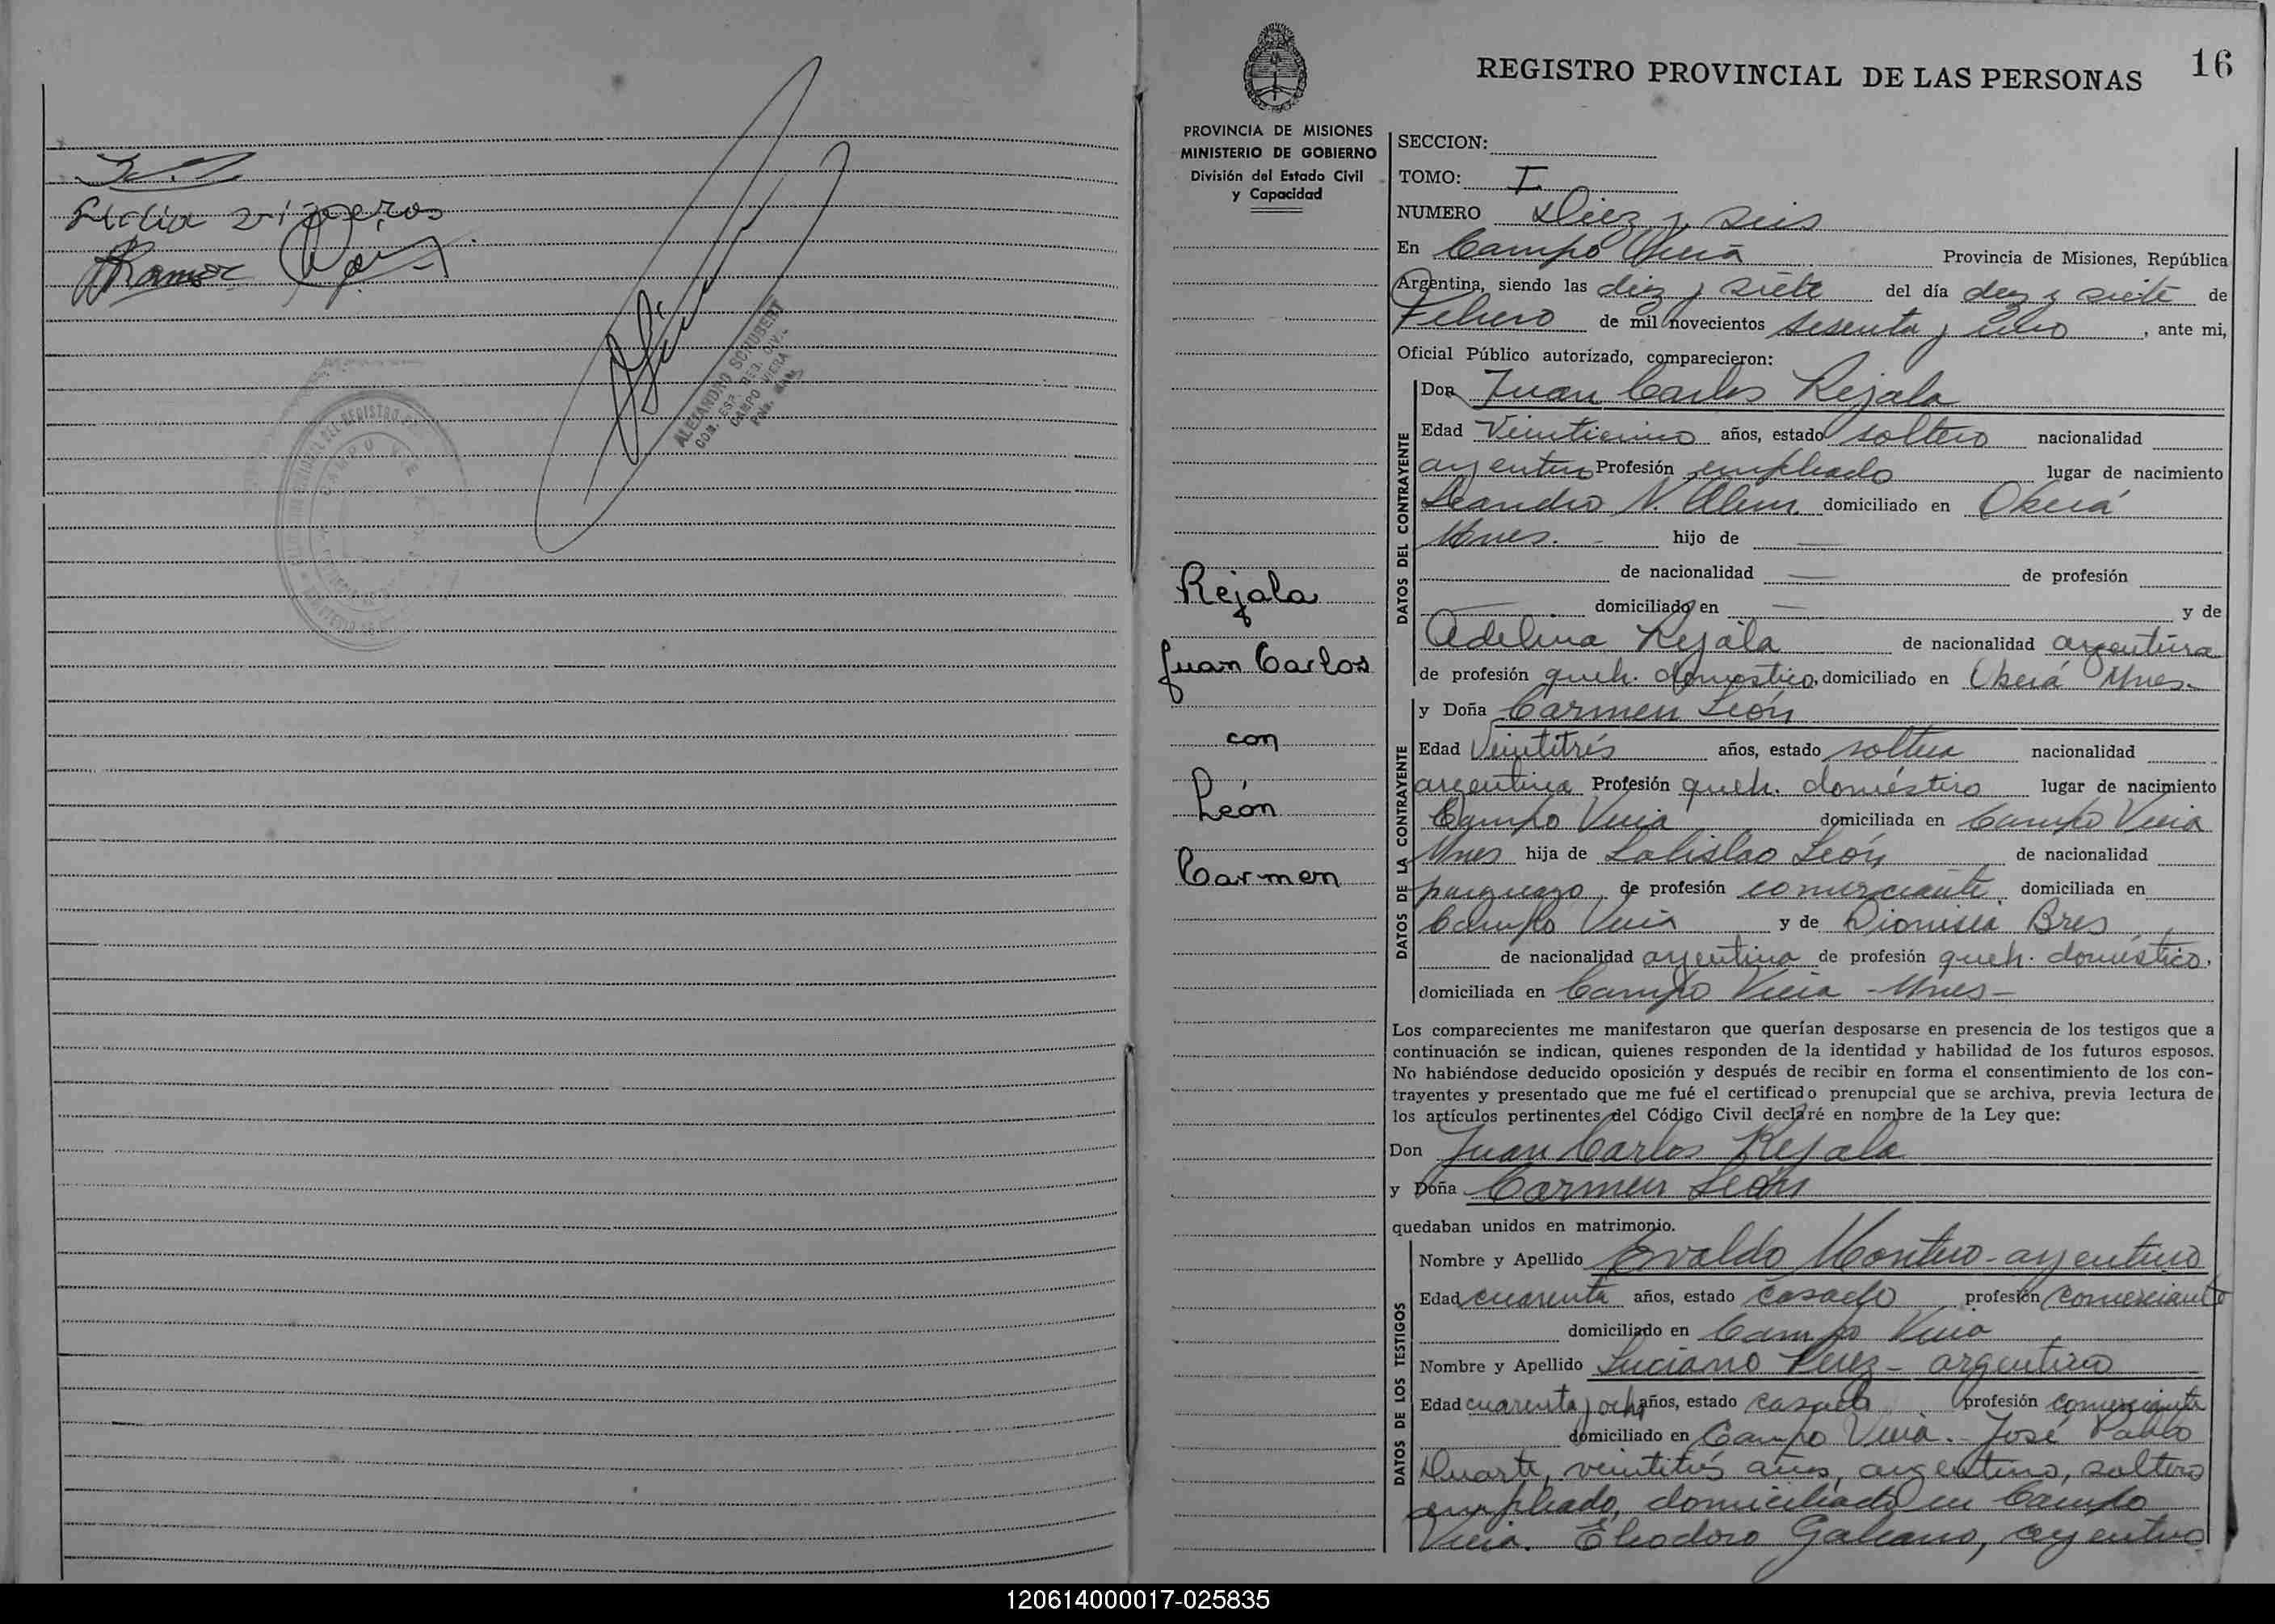 Ramos
ALEJANDRO SCHUBERT
CAMPO VIERA
16
REGISTRO PROVINCIAL DE LAS PERSONAS
PROVINCIA DE MISIONES
MINISTERIO DE GOBIERNO
División del Estado Civil
y Capacidad
Rejala
Juan Carlos
con
León
Carmen
SECCION:
TOMO: I
NUMERO Diez y seis
En Campo Viera Provincia de Misiones, República
Argentina, siendo las diez y siete del día diez y siete de
Febrero de mil novecientos sesenta y uno, ante mi,
Oficial Público autorizado, comparecieron:
DATOS DEL CONTRAYENTE
Don Juan Carlos Rejala
Edad años, estado soltero nacionalidad
argentino Profesión empleado lugar de nacimiento
Leandro N. Alem. domiciliado en Oberá
Mnes. - hijo de —
de nacionalidad — de profesión
— domiciliado en — y de
Adelina Rejala de nacionalidad argentina
de profesión queh. doméstico, domiciliado en Oberá Mnes.
DATOS DE LA CONTRAYENTE
y Doña Carmen León
Edad Veintitrés años, estado soltera nacionalidad
argentina Profesión queh. doméstico lugar de nacimiento
Campo Viera domiciliada en Campo Viera
Mnes hija de Ladislao León de nacionalidad
paraguayo, de profesión comerciante domiciliada en
Campo Viera y de Dionisia Bres
de nacionalidad argentina de profesión queh. doméstico,
domiciliada en Campo Viera - Mnes -
Los comparecientes me manifestaron que querían desposarse en presencia de los testigos que a
continuación se indican, quienes responden de la identidad y habilidad de los futuros esposos.
No habiéndose deducido oposición y después de recibir en forma el consentimiento de los con-
trayentes y presentado que me fué el certificado prenupcial que se archiva, previa lectura de
los artículos pertinentes del Código Civil declaré en nombre de la Ley que:
Don Juan Carlos Rejala
y Doña Carmen León
quedaban unidos en matrimonio.
DATOS DE LOS TESTIGOS
Nombre y Apellido Evaldo Montero - argentino
Edad cuarenta años, estado casado profesión comerciante
domiciliado en Campo Viera
Nombre y Apellido Luciano Perez - argentino
Edad cuarenta y ocho años, estado casado profesión comerciante
domiciliado en Campo Viera. - José Pablo
Duarte, veintitrés años, argentino, soltero
empleado, domiciliado en Campo
Viera. Eleodoro Galeano, argentino
120614000017-025835